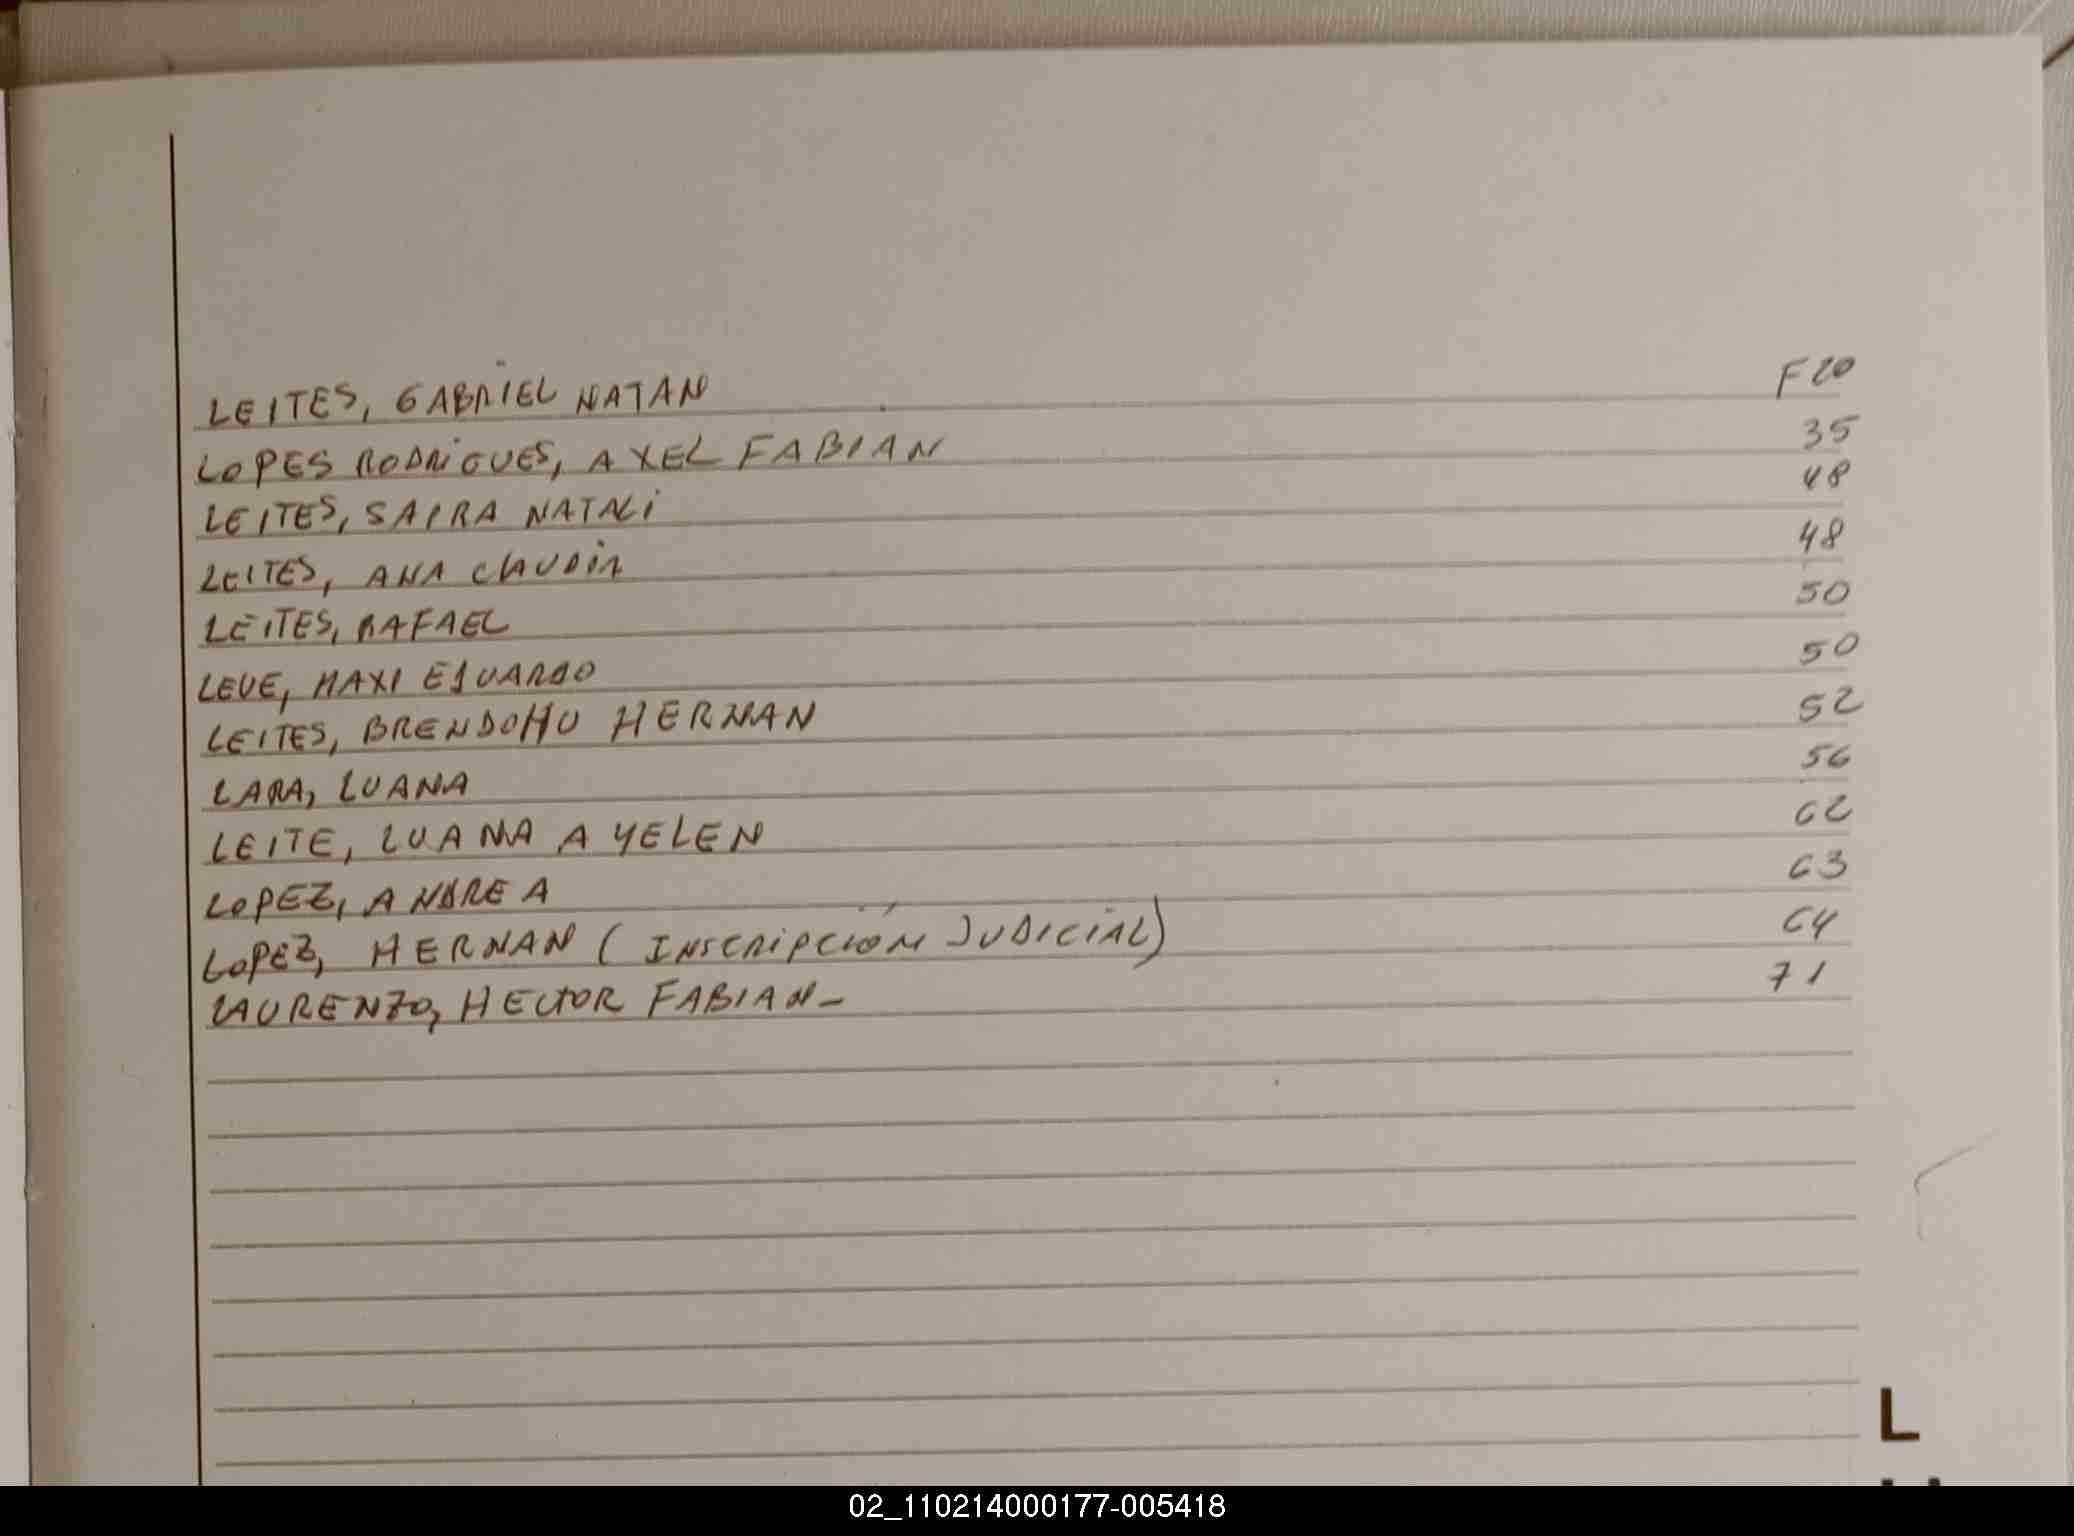 LEITES, GABRIEL NATAN F 20
LOPES RODRIGUES, AXEL FABIAN 35
LEITES, SAIRA NATALI 48
LEITES, ANA CLAUDIA 48
LEITES, RAFAEL 50
LEUE, MAXI EDUARDO 50
LEITES, BRENDOHU HERNAN 52
LARA, LUANA 56
LEITE, LUANA AYELEN 62
LOPEZ, ANDREA 63
LOPEZ, HERNAN (INSCRIPCIÓN JUDICIAL) 64
LAURENZO, HECTOR FABIAN- 71
L
02_110214000177-005418